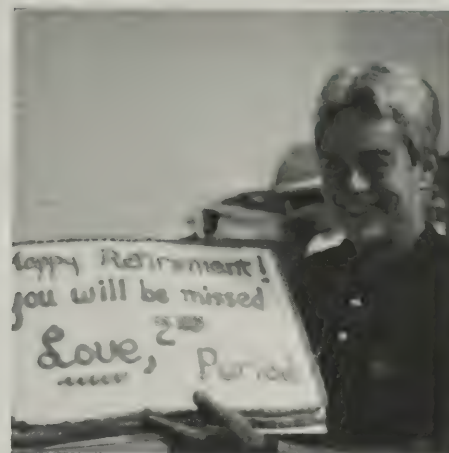 Happy Retirement!
you will be missed
Love, 2nd
Period